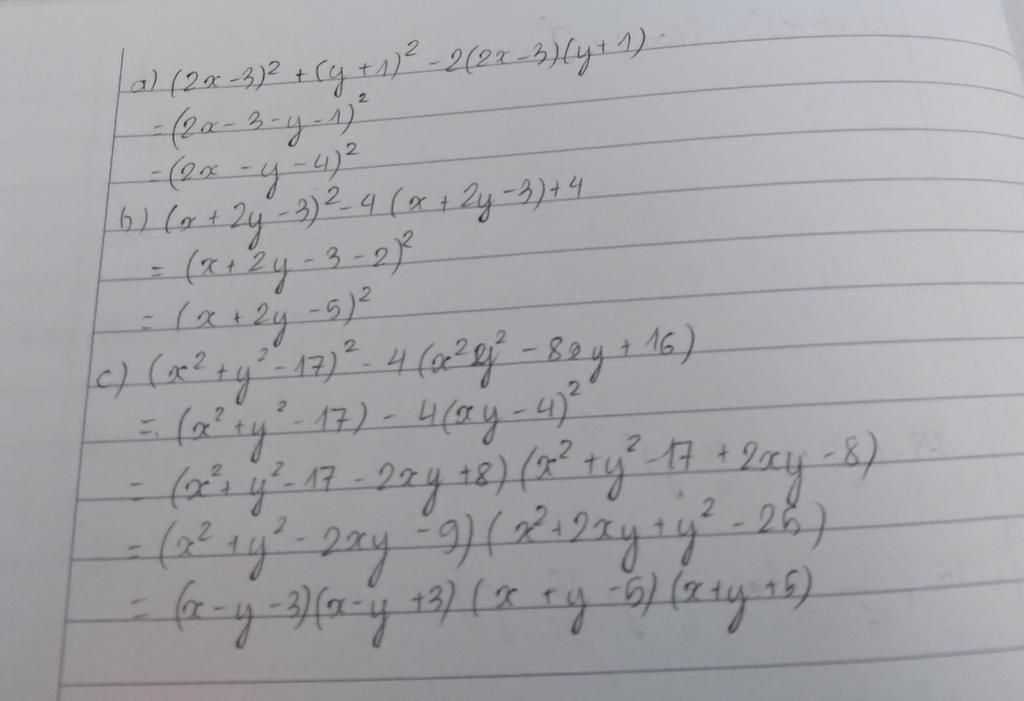 a) (2x-3)² + (y+1)² - 2(2x-3)(y+1).
= (2x-3-y-1)²
= (2x-y-4)²
b) (x+2y-3)² - 4(x+2y-3)+4
= (x+2y-3-2)²
= (x+2y-5)²
c) (x²+y²-17)² - 4(x²y²-8xy+16)
= (x²+y²-17) - 4(xy-4)²
= (x²+y²-17-2xy+8)(x²+y²-17+2xy-8)
= (x²+y²-2xy-9)(x²+2xy+y²-25)
= (x-y-3)(x-y+3)(x+y-5)(x+y+5)